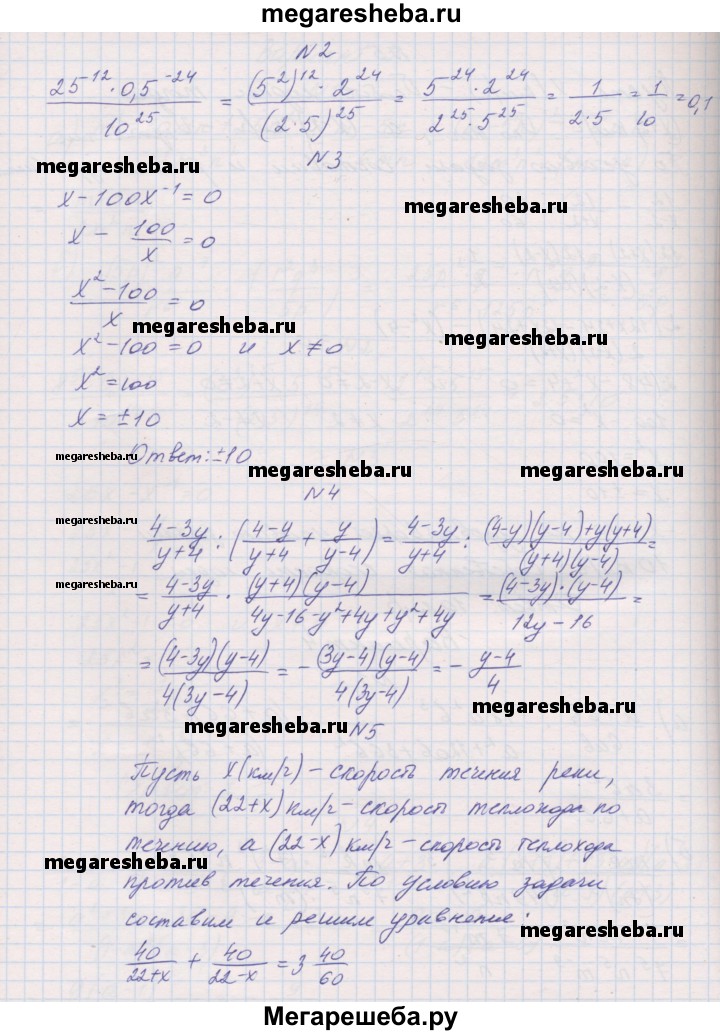 megaresheba.ru
N2
25^12 · 0,5^-24 / 10^25 = (5^2)^12 · 2^24 / (2·5)^25 = 5^24 · 2^24 / 2^25 · 5^25 = 1 / 2·5 = 1/10 = 0,1
N3
megaresheba.ru
x - 100x^-1 = 0
megaresheba.ru
x - 100/x = 0
x^2 - 100 / x = 0
megaresheba.ru
megaresheba.ru
x^2 - 100 = 0 и x ≠ 0
x^2 = 100
x = ±10
megaresheba.ru
Ответ: ±10
megaresheba.ru
megaresheba.ru
megaresheba.ru
N4
megaresheba.ru
4-3y / y+4 : (4-y / y+4 + y / y-4) = 4-3y / y+4 : (4-y)(y-4)+y(y+4) / (y+4)(y-4) =
megaresheba.ru
= 4-3y / y+4 · (y+4)(y-4) / 4y-16-y^2+4y+y^2+4y = (4-3y)·(y-4) / 12y-16 =
= (4-3y)(y-4) / 4(3y-4) = - (3y-4)(y-4) / 4(3y-4) = - y-4 / 4
megaresheba.ru
megaresheba.ru
N5
Пусть x (км/г) - скорость течения реки,
тогда (22+x) км/г - скорость теплохода по
течению, а (22-x) км/г - скорость теплохода
megaresheba.ru
против течения. По условию задачи
составим и решим уравнение:
megaresheba.ru
40 / 22+x + 40 / 22-x = 3 40/60
Мегарешеба.ру